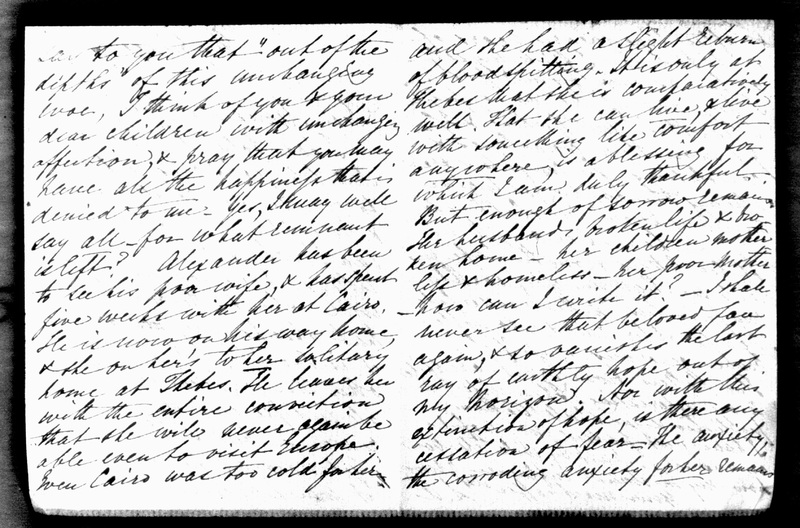 to you that "out of the
depths" of this unchanging
woe, I think of you & your
dear children with unchanging
affection, & pray that you may
have all the happiness that is
denied to me - Yes, I may well
say all - for what remnant
is left? Alexander has been
to see his poor wife, & has spent
five weeks with her at Cairo.
He is now on his way home,
& she on her's to her solitary
home at Thebes. He leaves her
with the entire conviction
that she will never again be
able even to visit Europe.
Even Cairo was too cold for her
and she had a slight return
of bloodspitting. It is only at
Thebes that she is comparatively
well. That she can live, & live
with something like comfort
anywhere, is a blessing for
which I am duly thankful.
But enough of sorrow remains.
Her husband's broken life & bro
ken home - her children mother
less & homeless - her poor mother
- how can I write it? - I shall
never see that beloved face
again, & so vanishes the last
ray of earthly hope out of
my horizon. Nor with this
extinction of hope, is there any
cessation of fear - The anxiety,
the corroding anxiety for her remains